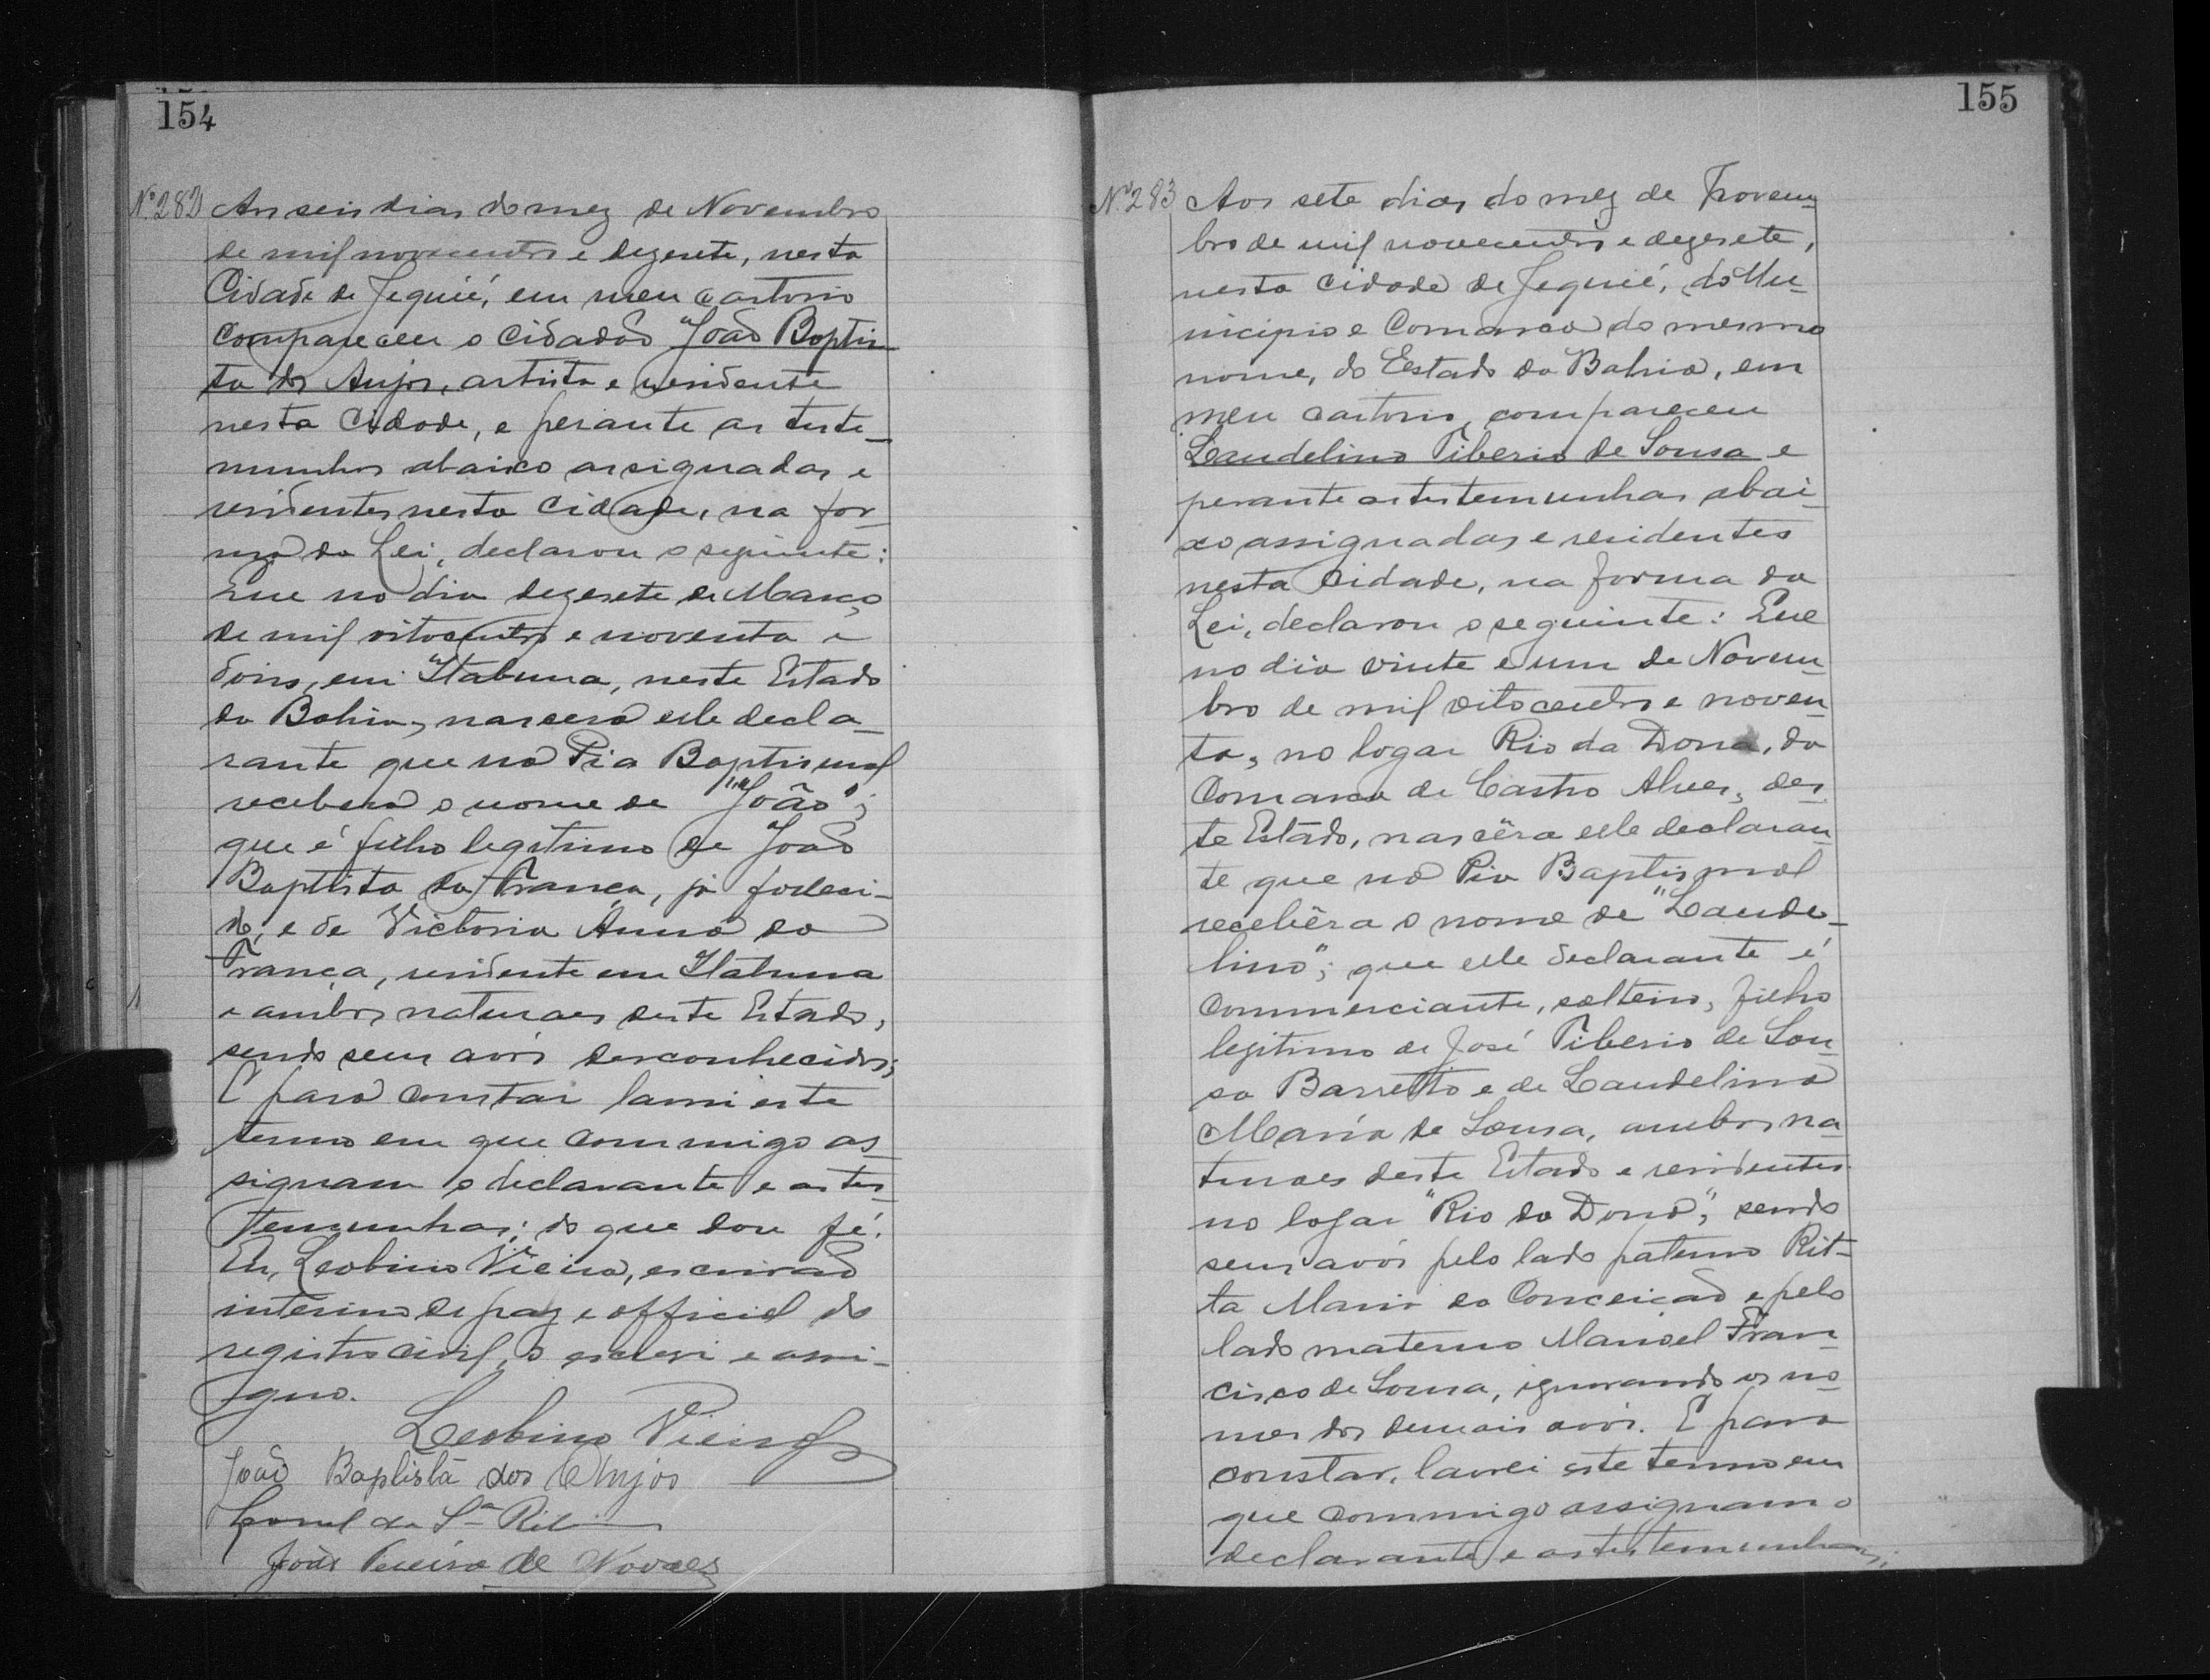 154
Nº 282 Aos seis dias do mez de Novembro
de mil novecentos e dezesete, nesta
Cidade de Jequié, em meu cartorio
compareceu o cidadão João Baptis-
ta dos Anjos, artista e residente
nesta Cidade, e perante as teste-
munhas abaixo assignadas e
residentes nesta Cidade, na for-
ma da Lei, declarou o seguinte:
Que no dia dezesete de Março
de mil oitocentos e noventa e
dois, em Itabuna, neste Estado
da Bahia, nascera elle decla-
rante que na Pia Baptismal
recebera o nome de "João";
que é filho legitimo de João
Baptista da França, já falleci-
do, e de Victoria Anna da
França, residente em Itabuna
e ambos naturaes deste Estado,
sendo seus avós desconhecidos;
E para constar lavrei este
termo em que commigo as-
signam o declarante e as tes-
temunhas; do que dou fé.
Eu, Leobino Vieira, escrivão
interino de paz e official do
registro civil, o escrevi e assi-
gno.
Leobino Vieira
João Baptista dos Anjos
Leonel da Sª
João Pereira de Novaes
155
Nº 283 Aos sete dias do mez de Novem-
bro de mil novecentos e dezesete,
nesta Cidade de Jequié, do Mu-
nicipio e Comarca do mesmo
nome, do Estado da Bahia, em
meu cartorio, compareceu
Laudelino Tiberio de Sousa e
perante as testemunhas abai-
xo assignadas e residentes
nesta Cidade, na forma da
Lei, declarou o seguinte: Que
no dia vinte e um de Novem-
bro de mil oitocentos e noven-
ta, no logar Rio da Dona, da
Comarca de Castro Alves, des-
te Estado, nascêra elle declaran-
te que na Pia Baptismal
recebêra o nome de "Laude-
lino"; que elle declarante é
commerciante, solteiro, filho
legitimo de José Tiberio de Sou-
sa Barretto e de Laudelina
Maria de Sousa, ambos na-
turaes deste Estado e residentes
no logar "Rio da Dona", sendo
seus avós pelo lado paterno Rit-
ta Maria da Conceição e pelo
lado materno Manoel Fran-
cisco de Sousa, ignorando os no-
mes dos demais avós. E para
constar, lavrei este termo em
que commigo assignam o
declarante e as testemunhas;